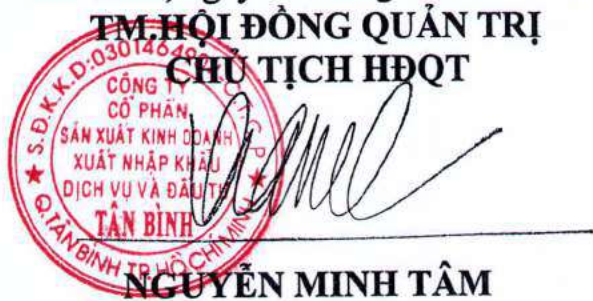 TM.HỘI ĐỒNG QUẢN TRỊ
CHỦ TỊCH HĐQT
CÔNG TY
CỔ PHẦN
SẢN XUẤT KINH DOANH
XUẤT NHẬP KHẨU
DỊCH VỤ VÀ ĐẦU TƯ
TÂN BÌNH
Q. TÂN BÌNH TP. HỒ CHÍ MINH
NGUYỄN MINH TÂM